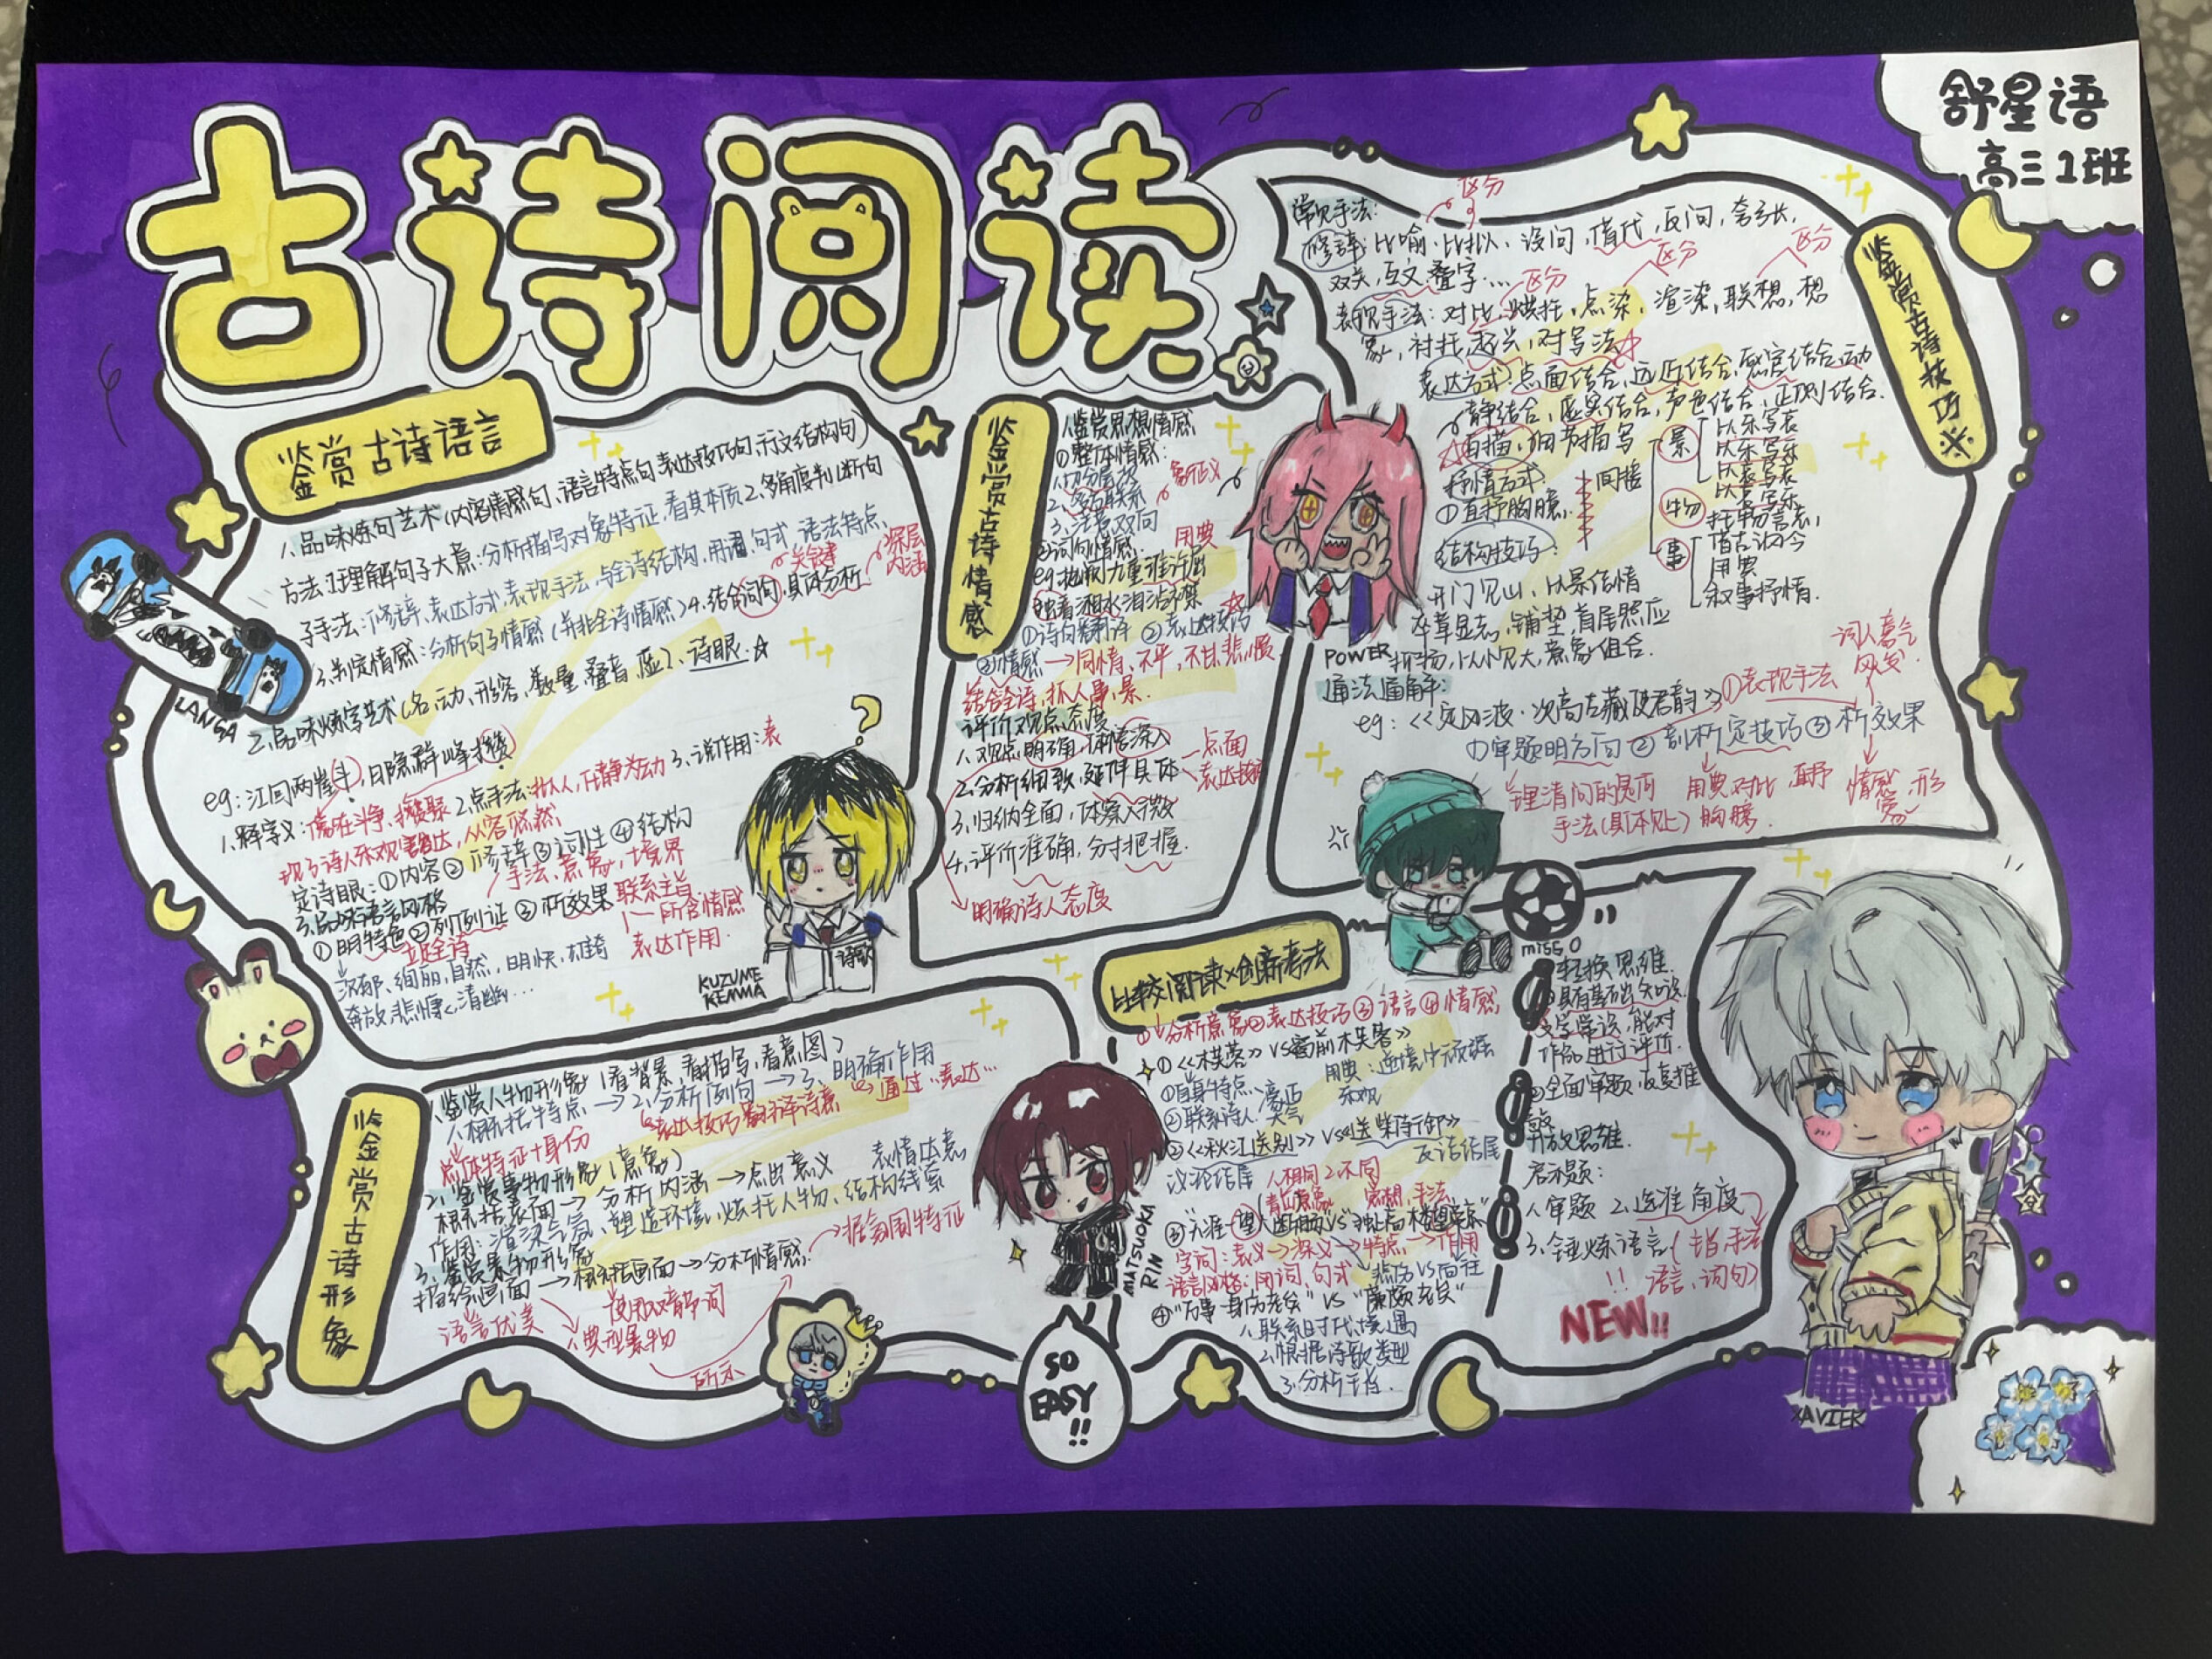 古诗阅读
舒星语
高三1班
鉴赏古诗语言
1、品味炼句艺术(内容情感句、语言特点句、表达技巧句、示文结构句)
方法:1.理解句子大意:分析描写对象特征,看其本质 2、多角度判断句
子手法:修辞、表达方式、表现手法,与全诗结构,用词、句式,语法特点、
关键
深层内涵
3、判定情感:分析句子情感(并非全诗情感) 4、结合词句,具体分析
2、品味炼字艺术(名、动、形容、数量、叠音、虚)、诗眼☆
eg:江回两崖斗,日隐群峰攒
2.点手法:拟人,化静为动 3、说作用:表
现了诗人乐观豁达,从容
定诗眼:①内容②修辞③词性④结构
手法、意象,境界
3、品味语言风格
①明特色②列例证③析效果
联系主旨
所含情感
表达作用.
立足全诗
沉郁、绚丽,自然,明快,雄奇
奔放,悲慨,清幽...
LANGA
KUZUME
KENMA
诗歌
鉴赏古诗情感
1.鉴赏思想情感
①整体情感:
1.切分层次
2、多方联系
3、注意双向
②词句情感:
用典
①诗句翻译 ②表达技巧
③情感→同情、不平,不甘,悲慨
结合全诗,抓人、事、景.
评价观点态度
1、观点明确,体悟深入
2.分析细致,延伸具体
点面
表达技巧
3、归纳全面,体察入微
4、评价准确,分寸把握.
明确诗人态度
鉴赏古诗技巧※
常见手法:
区分
修辞:比喻、比拟、设问,借代,反问,夸张,
双关,互文,叠字...
区分
区分
区分
表现手法:对比,烘托,点染,渲染,联想,想
象,衬托,起兴,对写法☆
表达方式:点面结合,远近结合,感官结合,动
静结合,虚实结合,声色结合,正侧结合.
白描,细节描写
抒情方式
①直抒胸臆.
间接
景
以乐写哀
以乐写乐
以哀写哀
以哀写乐
物
托物言志,
事
借古讽今
用典
叙事抒情.
结构技巧:
开门见山,以景结情
卒章显志,铺垫,首尾照应
抑扬,以小见大,意象组合.
POWER
通法通解:
eg:《定风波·次高左藏使君韵》
①表现手法
词人意气风发.
①审题明方向②剖析定技巧③析效果
理清问的是何
手法(具体处)
用典,对比,直抒
胸臆.
情感,形象
比较阅读×创新考法
①分析意象②表达技巧③语言④情感
①《木芙蓉》VS《窗前木芙蓉》
①自身特点:
②联系诗人:
②《秋江送别》VS《送柴侍御》
议论结尾
反语结尾
人相同2不同
字词:表义→深义→特点→作用
语言风格:用词、句式
悲伤VS向往
1、联系时代、境遇
2.根据诗歌类型
3、分析主旨.
miss O
转换思维.
①具有基础知识
文学常识,能对
作品进行评价.
②全面审题,反复推
敲
开放思维.
启示题:
1、审题 2、选准角度
3、锤炼语言(指手法
语言、词句)
!!
NEW!!
鉴赏古诗形象
1.鉴赏人物形象(看背景,看描写,看意图)
1、概括特点→2、分析例句→3、明确作用
总体特征+身份
表达技巧翻译诗意
通过...表达...
2、鉴赏事物形象(意象)
概括表面→分析内涵→点出意义
表情达意
作用:渲染气氛、塑造环境、烘托人物、结构线索
3、鉴赏景物形象
描绘画面→概括画面→分析情感.
据氛围特征
语言优美
使用双音节词
典型景物
所示
MATSUOKA
RIN
SO
EASY
!!
XAVIER